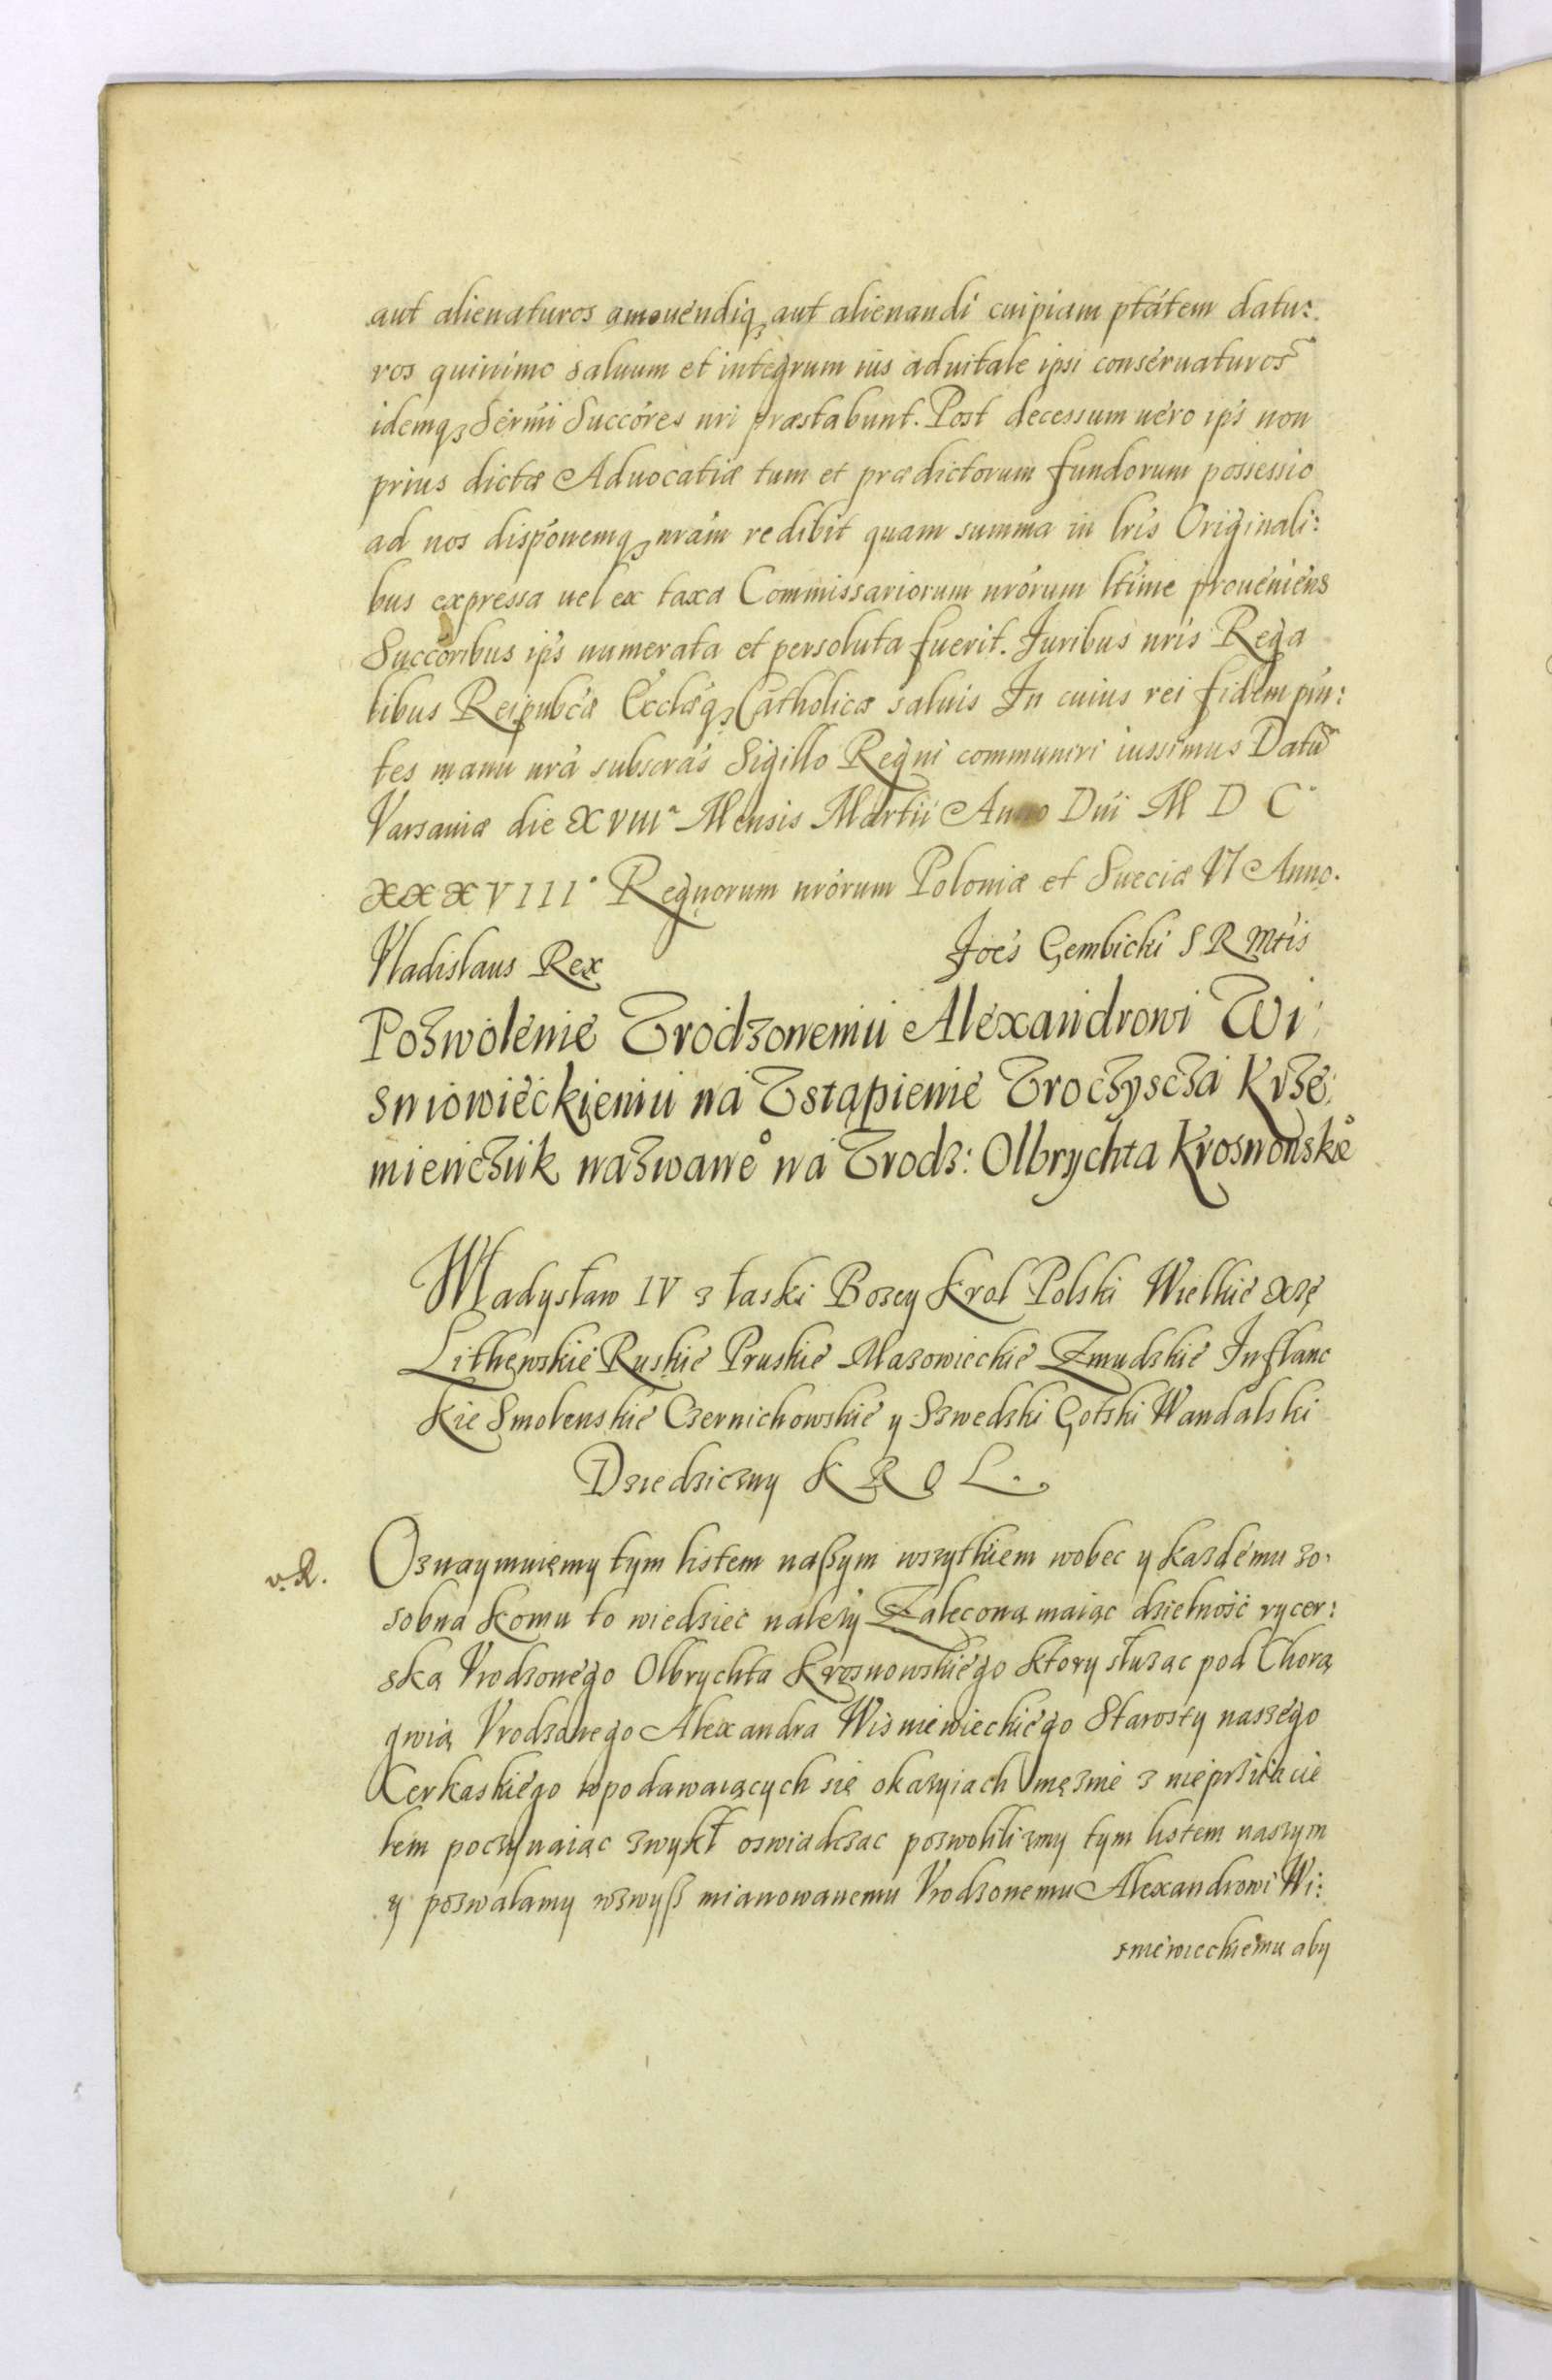 aut alienaturos amouendiq₃ aut alienandi cuipiam ptátem datu:
ros quinimo saluum et integrum ius aduitale ipsi conseruaturos
idemq₃ Sermi Succóres nri præstabunt. Post decessum uero ips non
prius dictæ Aduocatiæ tum et prædictorum fundorum possessio
ad nos disponemq₃ nram redibit quam summa in lris Originali:
bus expressa uel ex taxa Commissariorum nrórum ltime proueniens
Succoribus ips numerata et persoluta fuerit. Iuribus nris Rega
libus Reipubcæ Ecclæq₃ Catholicæ saluis In cuius rei fidem pńn:
tes manu nrá subscrás Sigillo Regni communiri iussimus Datū
Varsauiæ die XVIIIª Mensis Martii Anno Dni M D C°
XXXVIII° Regnorum nrórum Poloniæ et Sueciæ VI Anno.
Vladislaus Rex Joes Gembicki S R Mtis
Pozwolenie Vrodzonemu Alexandrowi Wi
sniowieckiemu na Vstąpienie Vroczyscza Krze:
mienczuk nazwane° na Vrodz: Olbrychta Krosnowske°
Władysław IV z łaski Bozey Krol Polski Wielkie Xzę
Lithewskie Ruskie Pruskie Mazowieckie Zmudzkie Inflanc
kie Smolenskie Czernichowskie y Szwedzki Gotski Wandalski
Dziedziczny K R O L.
v. R. Oznaymuiemy tym listem naßym wszytkiem wobec y kazdemu zo
sobna komu to wiedzieć nalezy Zalecona maiąc dzielność rycer:
ska Vrodzonego Olbrychta Krosnowskiego ktory słuzac pod Chorą
gwią Vrodzonego Alexandra Wisniewieckiego Starosty naszego
Cerkaskiego w podawaiących się okazyiach męznie z nieprziiacie
lem poczynaiąc zwykł oswiadczac pozwolilizmy tym listem naszym
y pozwalamy wzwyß mianowanemu Vrodzonemu Alexandrowi Wi:
sniewieckiemu aby